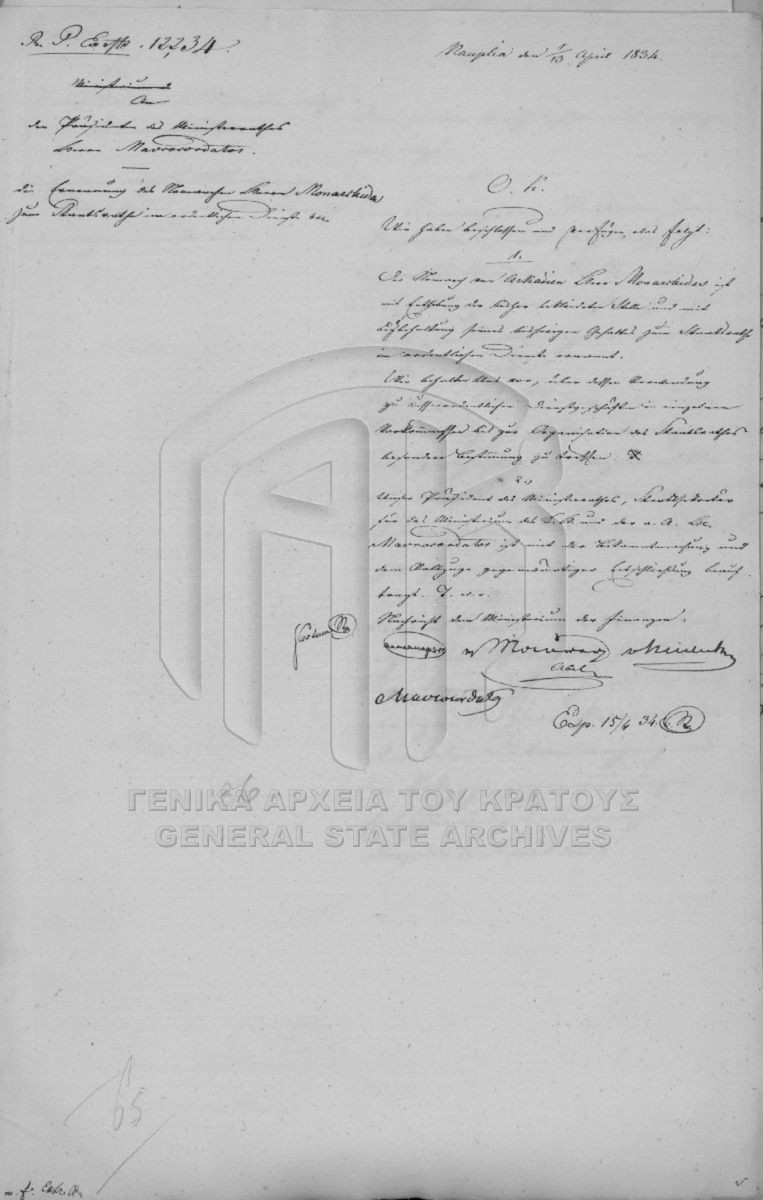 12,234.
Nauplia den 1/13 April 1834.
Ministerium
An
den Präsidenten des Ministerrathes
Herrn Mavrocordatos.
die Ernennung des Nomarchen Herrn Monarchides
zum Staatsrathe im ordentlichen Dienste
O. K.
Wir haben beschlossen und verfügen, was folgt:
1.
Der Nomarch von Arkadien Herr Monarchides ist
mit Enthebung der bisher bekleideten Stelle und mit
Beybehaltung seines bisherigen Gehaltes zum Staatsrathe
im ordentlichen Dienste ernannt.
Wir behalten Uns vor, über dessen Verwendung
zu ausserordentlichen Dienstgeschäften in einzelnen
Vorkommnissen bis zur Organisation des Staatsrathes
besondere Bestimmung zu treffen.
2.
Unser Präsident des Ministerrathes, Staatssekretär
für das Ministerium des
Mavrocordatos ist mit der Bekanntmachung und
dem Vollzuge gegenwärtiger Entschließung beauf-
tragt.
Nachricht dem Ministerium der Finanzen.
Abel
Mavrocordatos
Exp. 15/4 34.
65
ΓΕΝΙΚΑ ΑΡΧΕΙΑ ΤΟΥ ΚΡΑΤΟΥΣ
GENERAL STATE ARCHIVES